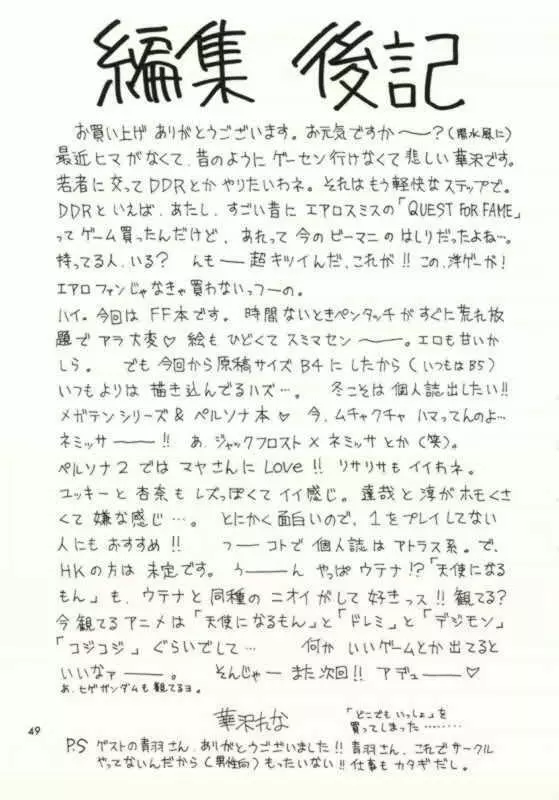 編集 後記
お買い上げ ありがとうございます。お元気ですか〜?(陽水風に)
最近ヒマがなくて、昔のようにゲーセン行けなくて悲しい華沢です。
若者に交ってDDRとかやりたいわネ。それはもう軽快なステップで。
DDRといえば、あたし、すごい昔にエアロスミスの「QUEST FOR FAME」
ってゲーム買ったんだけど、あれって今のビーマニのはしりだったよね…。
持ってる人、いる? んも──超キツイんだ、これが!!この、洋ゲーが!
エアロファンじゃなきゃ買わないっつーの。
ハイ。今回はFF本です。時間ないときペンタッチがすぐに荒れ放
題でアラ大変♡絵もひどくてスミマセン──。エロも甘いか
しら。 でも今回から原稿サイズB4にしたから(いつもはB5)
いつもよりは描き込んでるハズ…。 冬こそは個人誌出したい!!
メガテンシリーズ&ペルソナ本♡ 今、ムチャクチャハマってんのよ…
ネミッサ──!! あ、ジャックフロスト×ネミッサとか(笑)。
ペルソナ2ではマヤさんにLove!! リサリサもイイわネ。
ユッキーと杏奈もレズっぽくてイイ感じ。達哉と淳がホモくさ
くて嫌な感じ…。とにかく面白いので、1をプレイしてない
人にもおすすめ!! つーコトで個人誌はアトラス系。で、
HKの方は未定です。う──ん やっぱウテナ!?「天使になる
もん」も、ウテナと同種のニオイがして好きっス!!観てる?
今観てるアニメは「天使になるもん」と「ドレミ」と「デジモン」
「コジコジ」ぐらいでして… 何かいいゲームとか出てると
いいなァ──。 そんじゃーまた次回!! アデュー──♡
あ、ヒゲガンダムも観てるヨ。
華沢れな
「どこでもいっしょ」を
買ってしまった………
49
P.S ゲストの青羽さん、ありがとうございました!!青羽さん、これでサークル
やってないんだから(男性向)もったいない!!仕事もカタギだし。